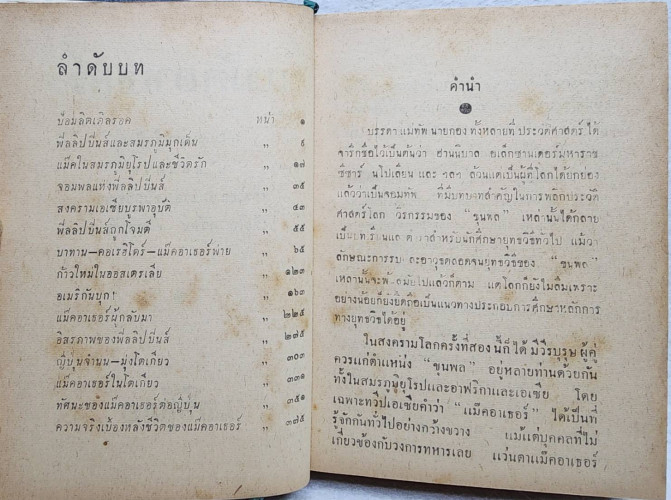 ลำดับบท
ป้อมลิตเติลรอค หน้า ๑
ฟิลลิปปินส์และสมรภูมิมุกเด็น ,, ๕
แม็คในสมรภูมิยุโรปและชีวิตรัก ,, ๑๗
จอมพลแห่งฟิลลิปปินส์ ,, ๓๕
สงครามเอเซียบูรพาอุบัติ ,, ๔๓
ฟิลลิปปินส์ถูกโจมตี ,, ๕๕
บาทาน—คอเรฮิโดร์—แม็คอาเธอร์พ่าย ,, ๖๕
ก้าวใหม่ในออสเตรเลีย ,, ๑๒๓
อเมริกันบุก! ,, ๑๖๓
แม็คอาเธอร์ผู้กลับมา ,, ๒๒๕
อิสรภาพของฟิลลิปปินส์ ,, ๒๗๕
ญี่ปุ่นจำนน—มุ่งโตเกียว ,, ๓๐๓
แม็คอาเธอร์ในโตเกียว ,, ๓๓๑
ทัศนะของแม็คอาเธอร์ต่อญี่ปุ่น ,, ๓๕๑
ความจริงเบื้องหลังชีวิตของแม็คอาเธอร์ ,, ๓๗๕
คำนำ
บรรดาแม่ทัพนายกองทั้งหลายที่ประวัติศาสตร์ได้
จาริกชื่อไว้เป็นต้นว่า ฮานนิบาล อเล็กซานเดอร์มหาราช
ซีซาร์ นโปเลียน และ ฯลฯ ล้วนแต่เป็นผู้ที่โลกได้ยกย่อง
แล้วว่าเป็นจอมทัพ ที่มีบทบาทสำคัญในการพลิกประวัติ
ศาสตร์โลก วีรกรรมของ “ขุนพล” เหล่านั้นได้กลาย
เป็นบทเรียนและตำราสำหรับนักศึกษายุทธวิธีทั่วไป แม้ว่า
ลักษณะการรบและอาวุธตลอดจนยุทธวิธีของ “ขุนพล”
เหล่านั้นจะพ้นสมัยไปแล้วก็ตาม แต่โลกก็ยังไม่ลืมเพราะ
อย่างน้อยก็ยังยึดถือเป็นแนวทางประกอบการศึกษาหลักการ
ทางยุทธวิธีได้อยู่
ในสงครามโลกครั้งที่สองนี้ก็ได้มีวีรบุรุษผู้คู่
ควรแก่ตำแหน่ง “ขุนพล” อยู่หลายท่านด้วยกัน
ทั้งในสมรภูมิยุโรปและอาฟริกาและเอเซีย โดย
เฉพาะทวีปเอเซียคำว่า “แม็คอาเธอร์” ได้เป็นที่
รู้จักกันทั่วไปอย่างกว้างขวาง แม้แต่บุคคลที่ไม่
เกี่ยวข้องกับวงการทหารเลย แว่นตาแม็คอาเธอร์